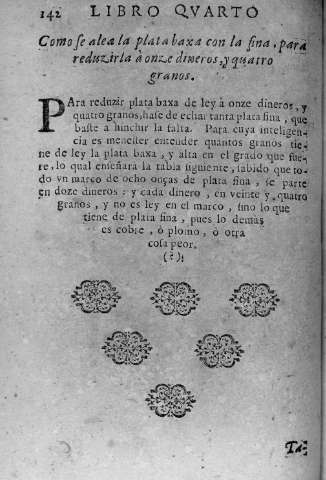 142 LIBRO QVARTO
Como se alea la plata baxa con la fina, para
reduzirla à onze dineros, y quatro
granos.
PAra reduzir plata baxa de ley à onze dineros, y
quatro granos, hase de echar tanta plata fina, que
baste a hinchir la falta. Para cuya inteligen-
cia es menester entender quantos granos tie-
ne de ley la plata baxa, y alta en el grado que fue-
re, lo qual enseñara la tabla siguiente, sabido que to-
do vn marco de ocho onças de plata fina, se parte
en doze dineros: y cada dinero, en veinte y quatro
granos, y no es ley en el marco, sino lo que
tiene de plata fina, pues lo demas
es cobre, ò plomo, ò otra
cosa peor.
(?)
Ta-